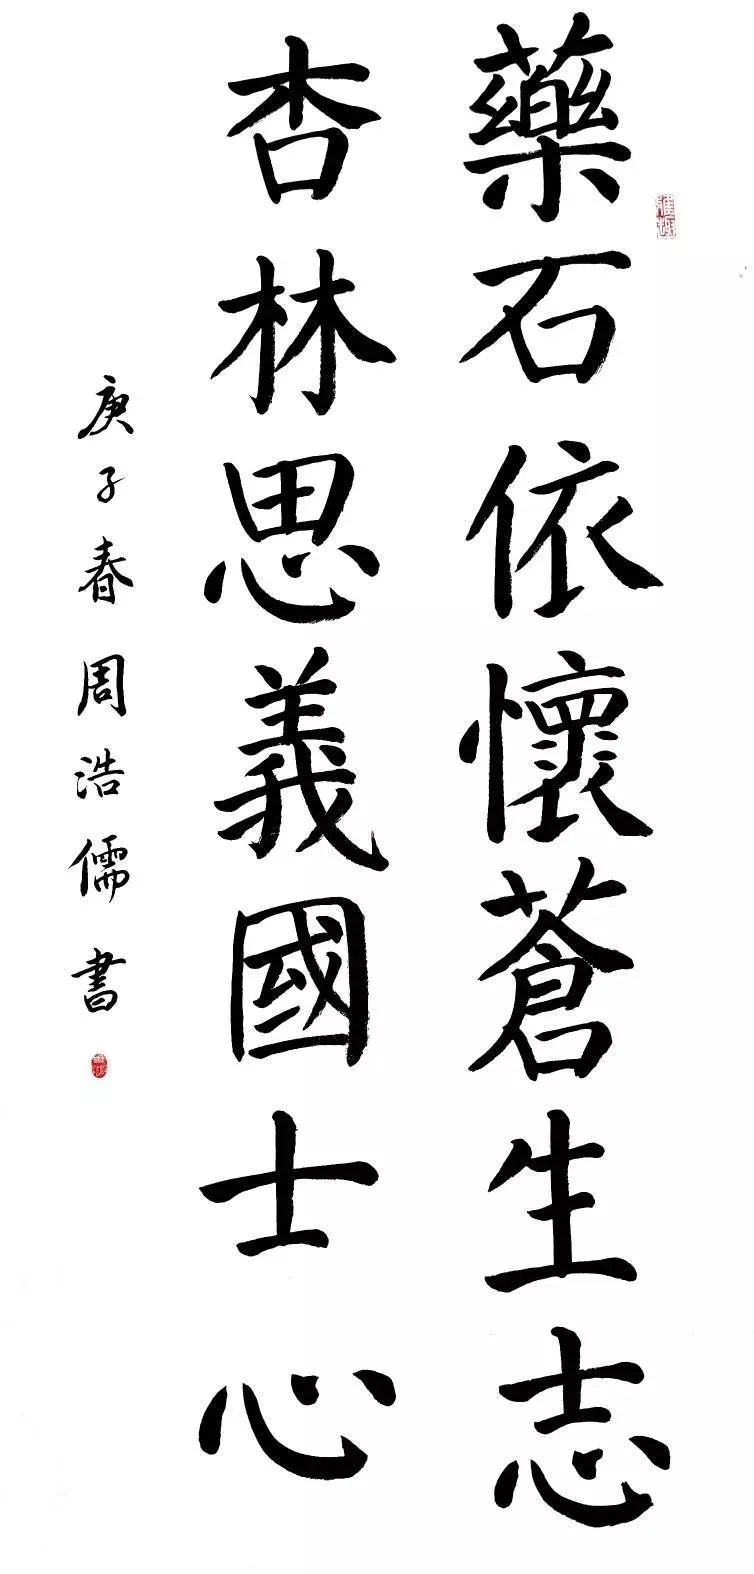 藥石依懷蒼生志
杏林思義國士心
庚子春周浩儒書